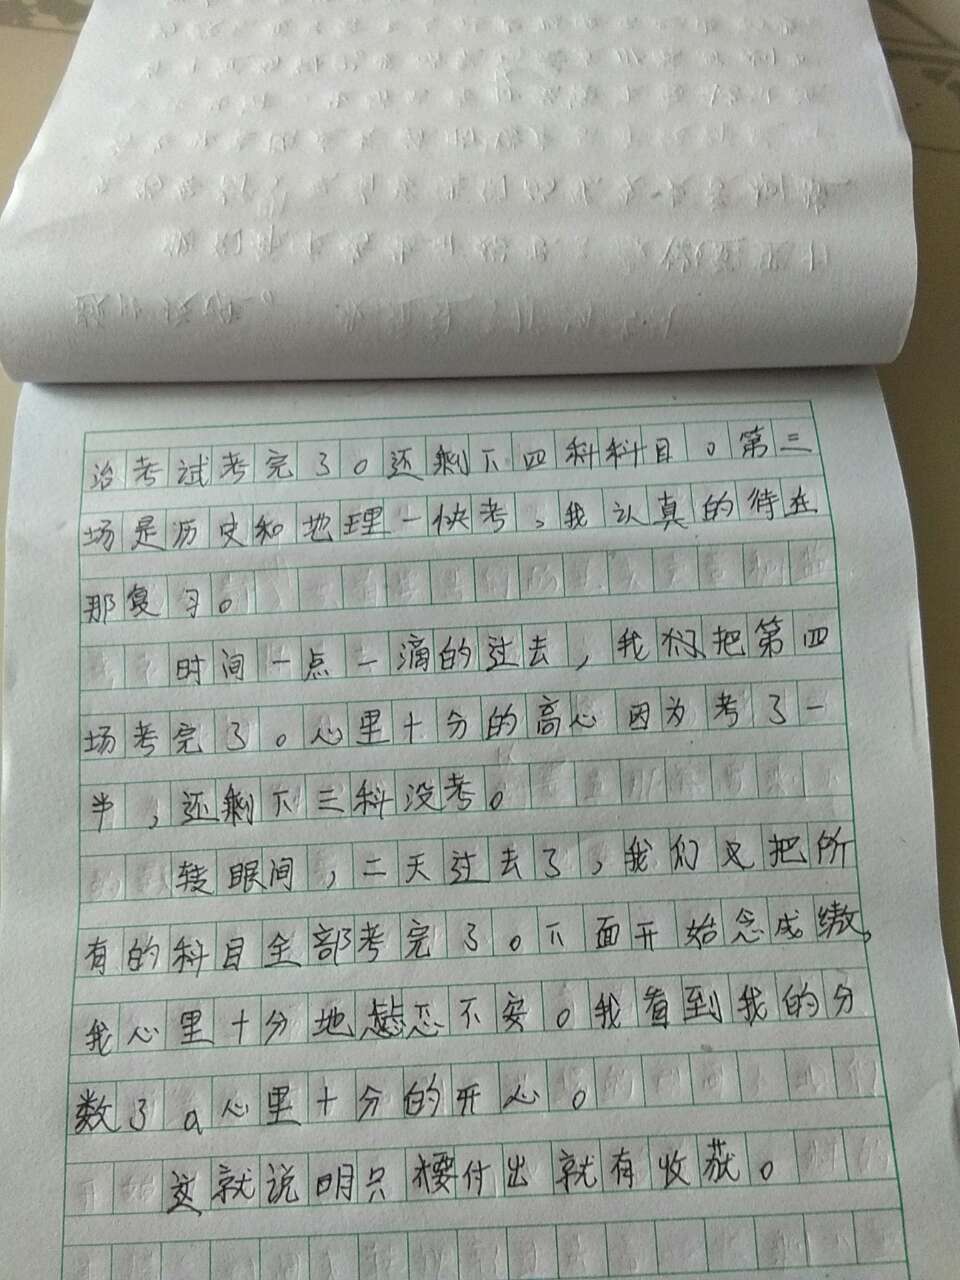 治考试考完了。还剩下四科科目。第三
场是历史和地理一块考。我认真的待在
那复习。
时间一点一滴的过去，我们把第四
场考完了。心里十分的高心因为考了一
半，还剩下三科没考。
转眼间，二天过去了，我们又把所
有的科目全部考完了。下面开始念成绩，
我心里十分地忐忑不安。我看到我的分
数了。心里十分的开心。
这就说明只要付出就有收获。